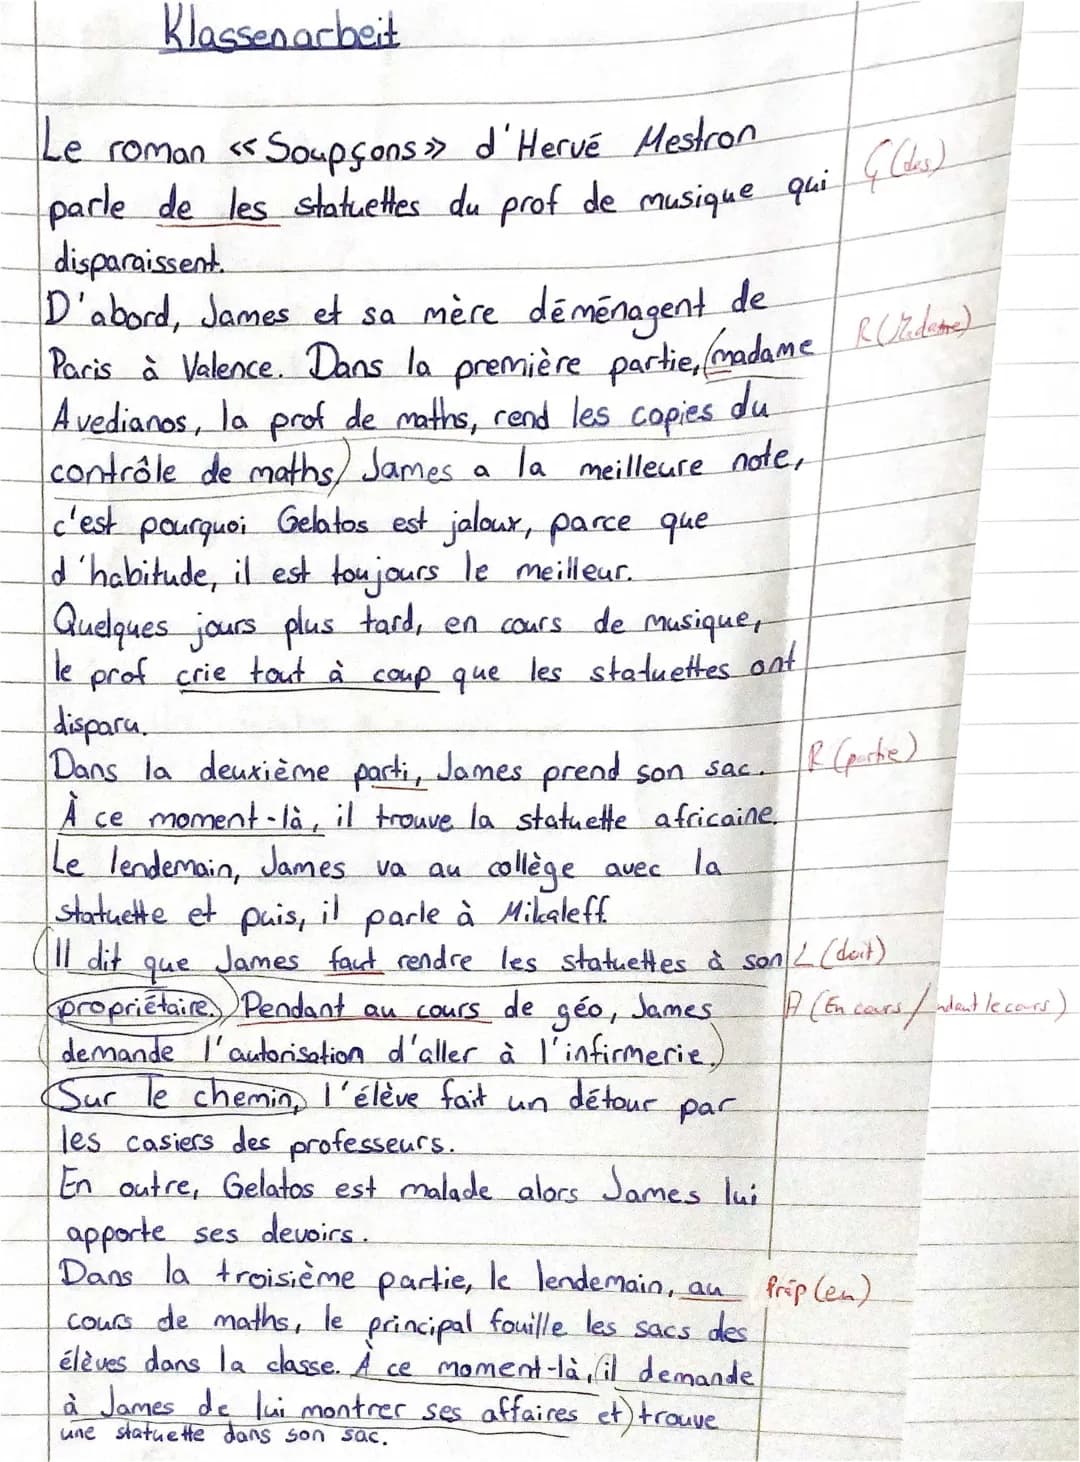 Klassenarbeit
Le roman «Soupçons» d'Hervé Mestron
parle de les statuettes du prof de musique qui G (des)
disparaissent.
D'abord, James et sa mère déménagent de
Paris à Valence. Dans la première partie, (madame R (Madame)
Avedianos, la prof de maths, rend les copies du
contrôle de maths) James a la meilleure note,
c'est pourquoi Gelatos est jaloux, parce que
d'habitude, il est toujours le meilleur.
Quelques jours plus tard, en cours de musique,
le prof crie tout à coup que les statuettes ont
disparu.
Dans la deuxième parti, James prend son sac. R (partie)
À ce moment-là, il trouve la statuette africaine.
Le lendemain, James va au collège avec la
statuette et puis, il parle à Mikaleff.
(Il dit que James faut rendre les statuettes à son L (doit)
propriétaire.) Pendant au cours de géo, James A (En cours / ndant le cours)
demande l'autorisation d'aller à l'infirmerie.)
Sur le chemin, l'élève fait un détour par
les casiers des professeurs.
En outre, Gelatos est malade alors James lui
apporte ses devoirs.
Dans la troisième partie, le lendemain, au Prép (en)
cours de maths, le principal fouille les sacs des
élèves dans la classe. À ce moment-là, (il demande
à James de lui montrer ses affaires et) trouve
une statuette dans son sac.